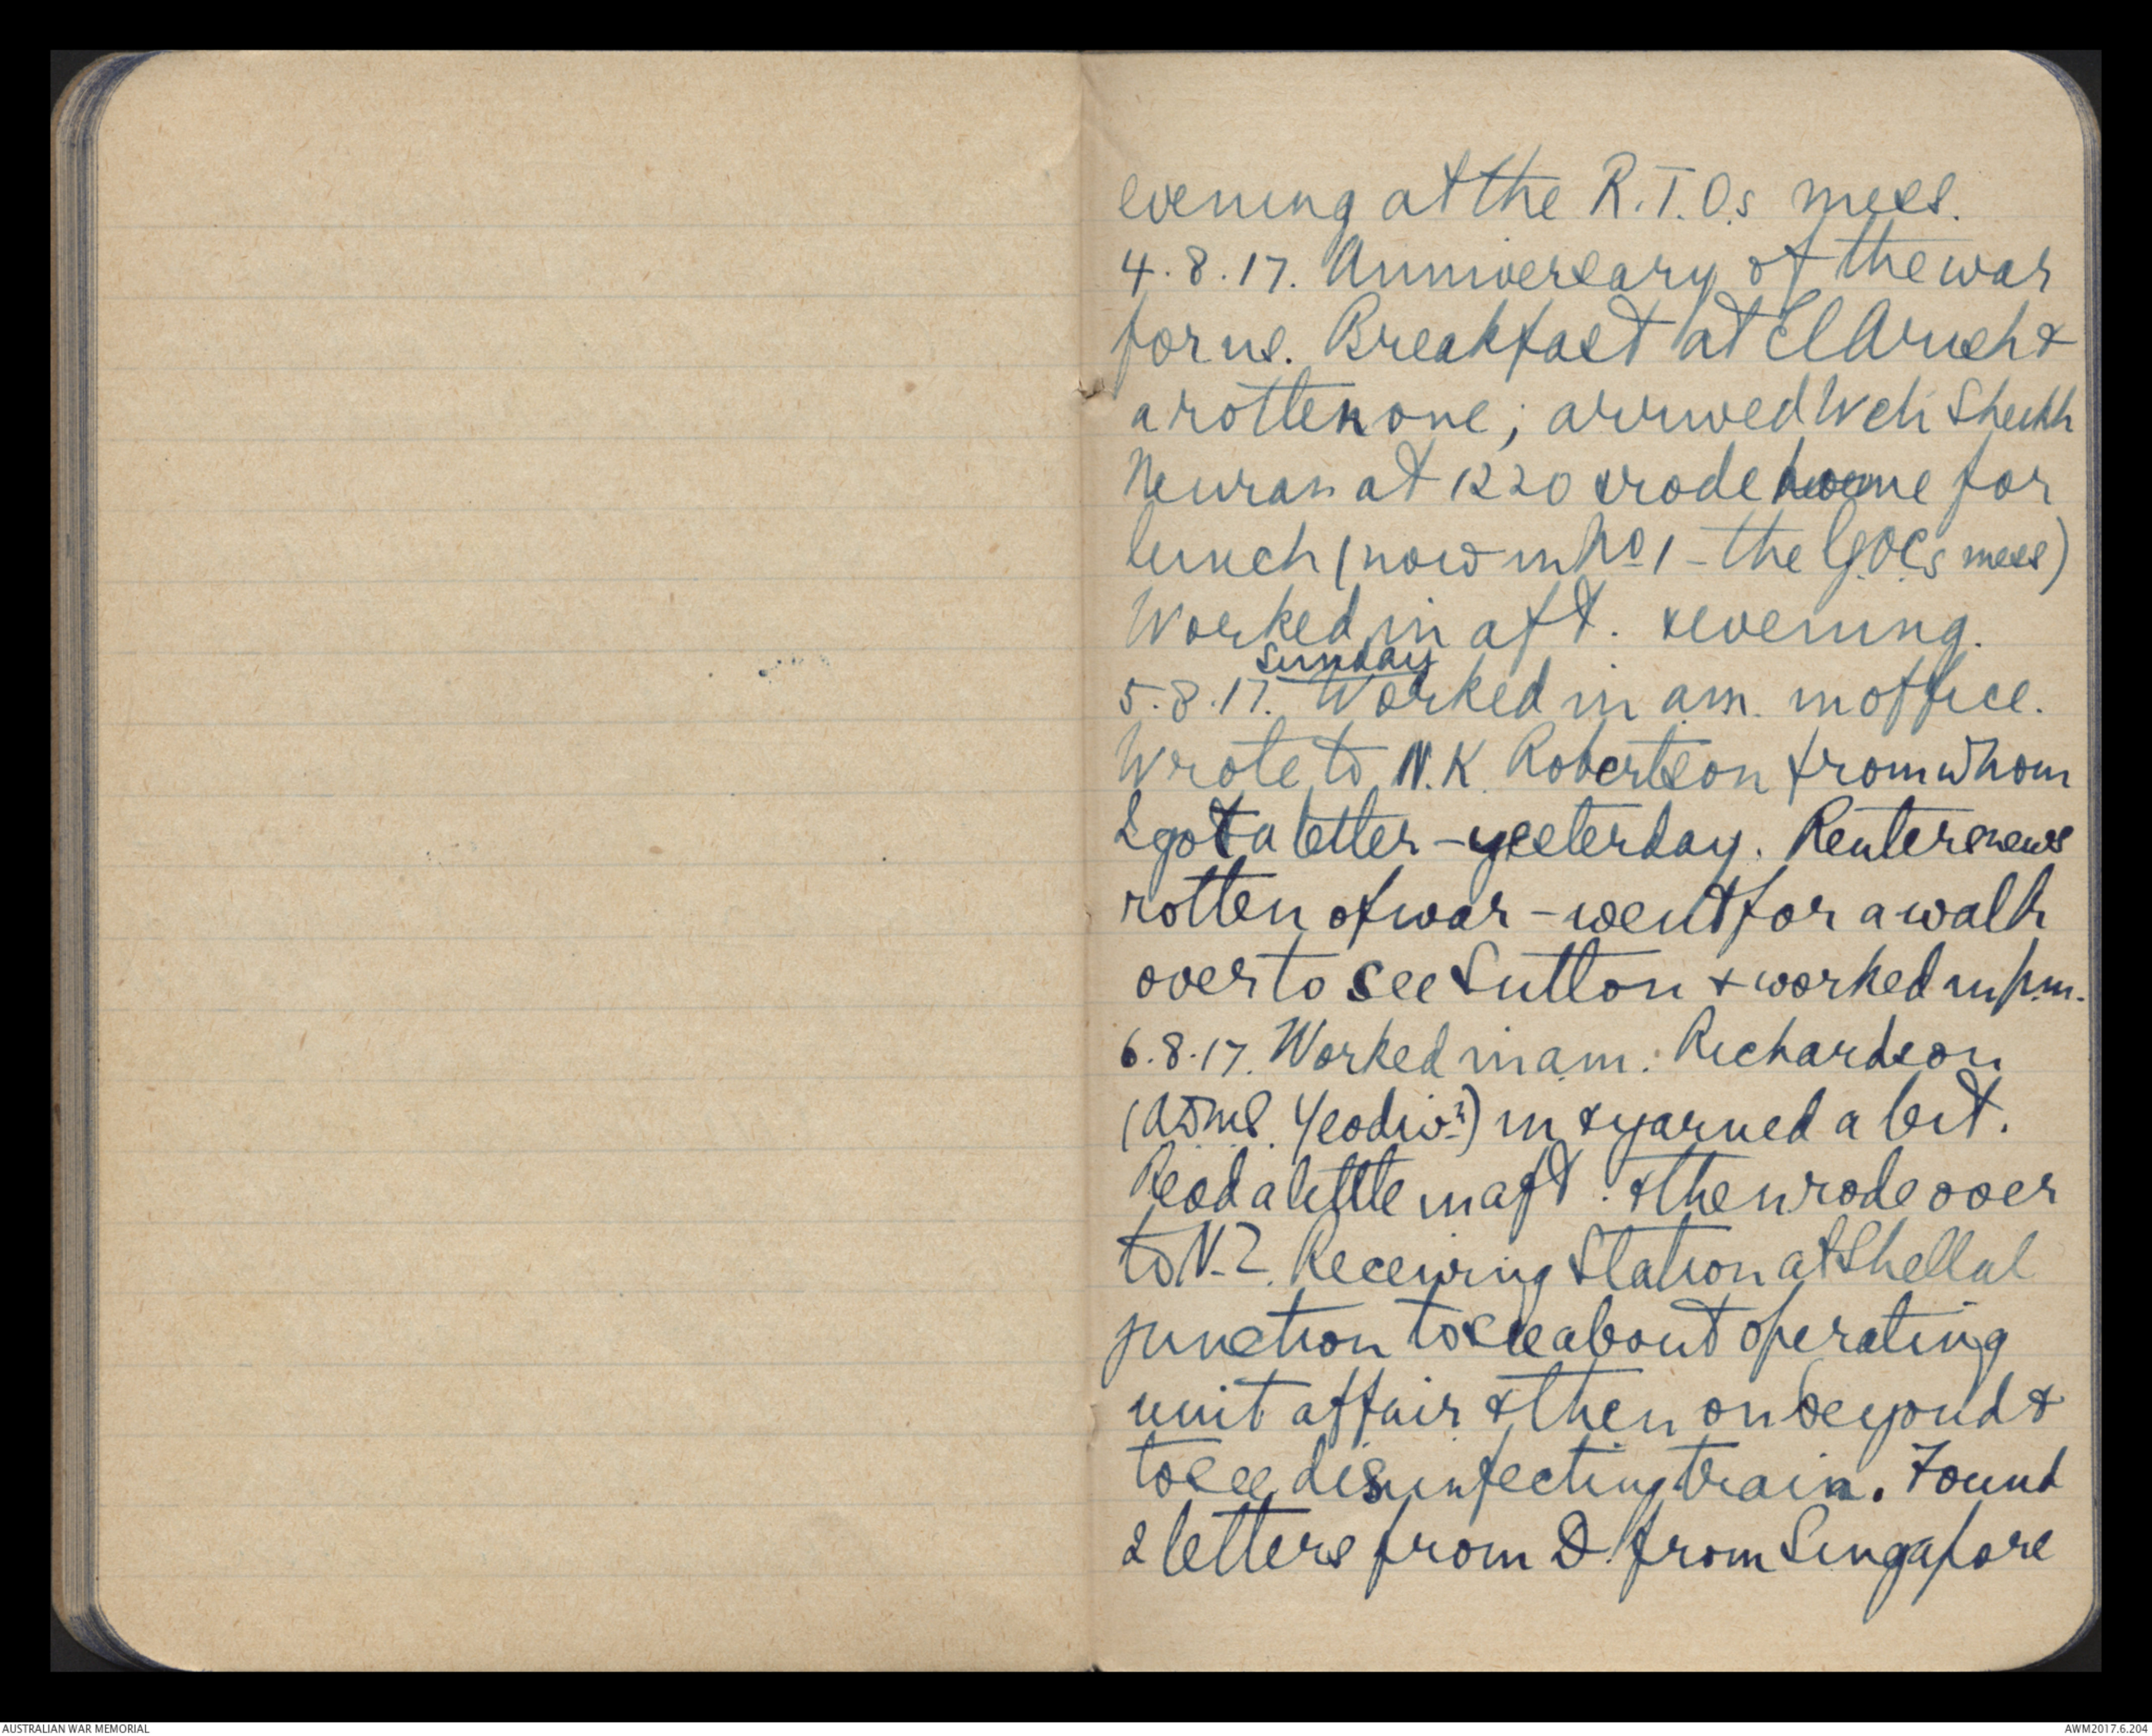 evening at the R.T.O.s mess.
4.8.17. Anniversary of the war
for us. Breakfast at El Arish &
a rotten one; arrived Weli Sheikh
Neuran at 1220 & rode home for
lunch (now in No 1 - the G.O.C.s mess)
Worked in aft. & evening.
Sunday
5.8.17. Worked in am. in office.
Wrote to N.K. Robertson from whom
I got a letter - yesterday. Reuters news
rotten of war - went for a walk
over to see Sutton & worked in p.m.
6.8.17. Worked in am. Richardson
(ADMS. Yeo divn) in & yarned a bit.
Read a little in aft. & then rode over
to N.Z. Receiving Station at Shellal
junction to see about operating
unit affair & then on beyond &
to see disinfecting train. Found
2 letters from D. from Singapore
AUSTRALIAN WAR MEMORIAL
AWM2017.6.204